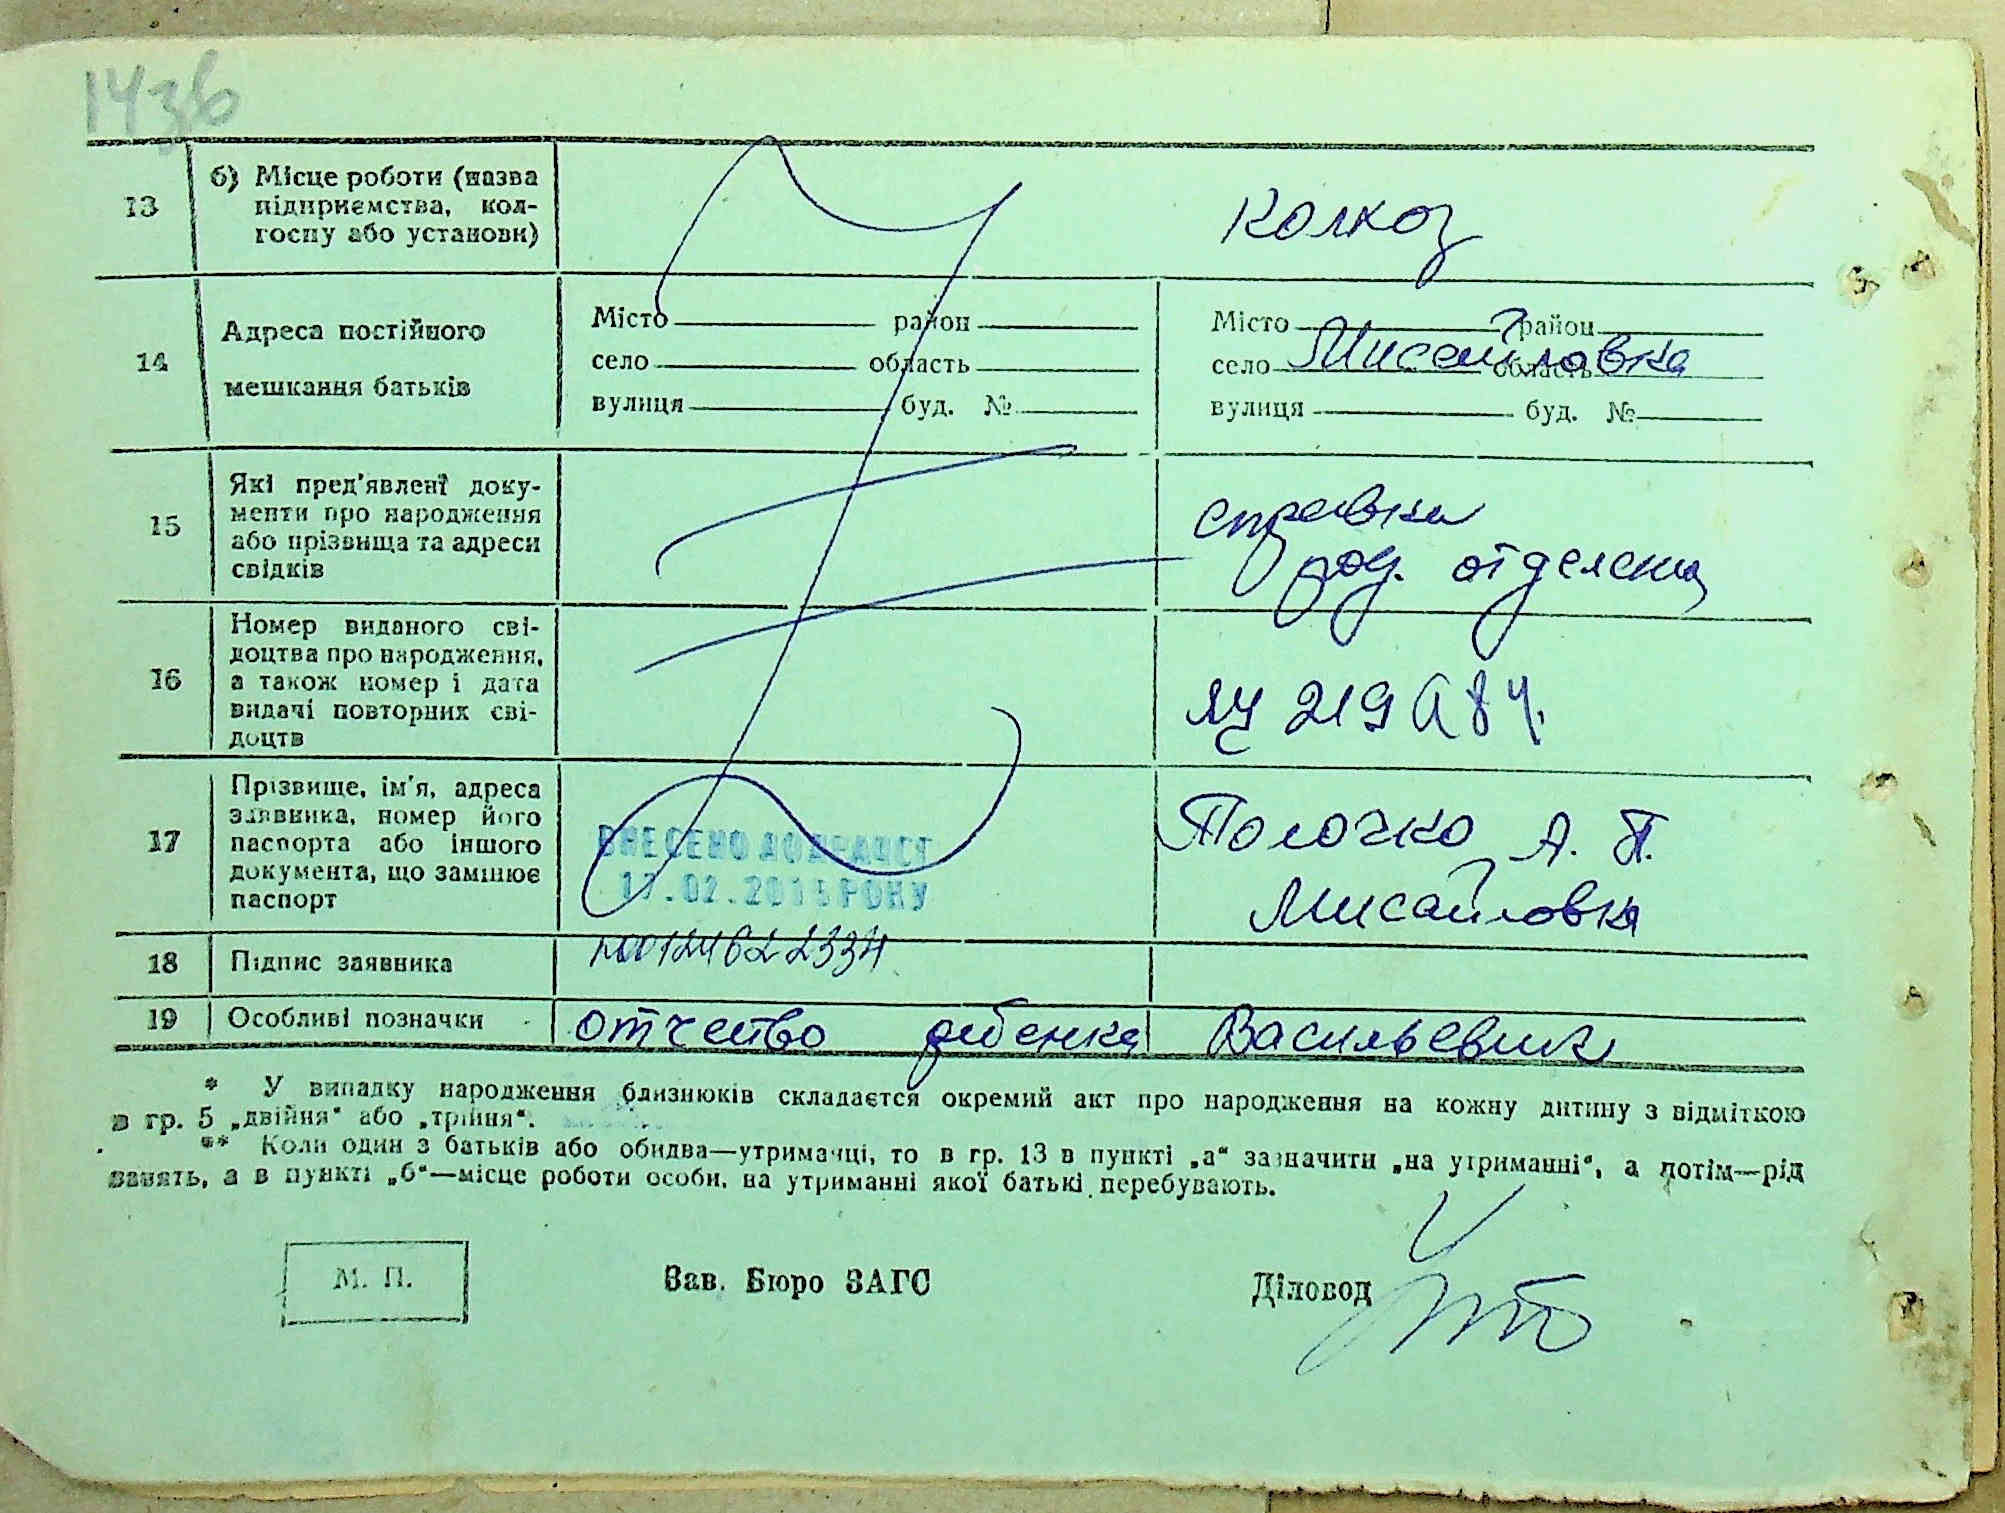 143б
13
б) Місце роботи (назва
підприємства, кол-
госпу або установи)
колхоз
14
Адреса постійного
мешкання батьків
Місто район
село область
вулиця буд. №
Місто район
село Мисайловка область
вулиця буд. №
15
Які пред'явлені доку-
менти про народження
або прізвища та адреси
свідків
справка
род. отделения
16
Номер виданого сві-
доцтва про народження,
а також номер і дата
видачі повторних сві-
доцтв
219
17
Прізвище, ім'я, адреса
заявника, номер його
паспорта або іншого
документа, що замінює
паспорт
ВНЕСЕНО ДО ДРАЦСГ
17.02.2015 РОКУ
Толочко А. П.
Мисайловка
18
Підпис заявника
19
Особливі позначки
отчество ребенка Васильевич
* У випадку народження близнюків складається окремий акт про народження на кожну дитину з відміткою
в гр. 5 „двійня“ або „трійня“.
** Коли один з батьків або обидва—утриманці, то в гр. 13 в пункті „а“ зазначити „на утриманні“, а потім—рід
занять, а в пункті „б“—місце роботи особи, на утриманні якої батьки перебувають.
М. П.
Зав. Бюро ЗАГС
Діловод